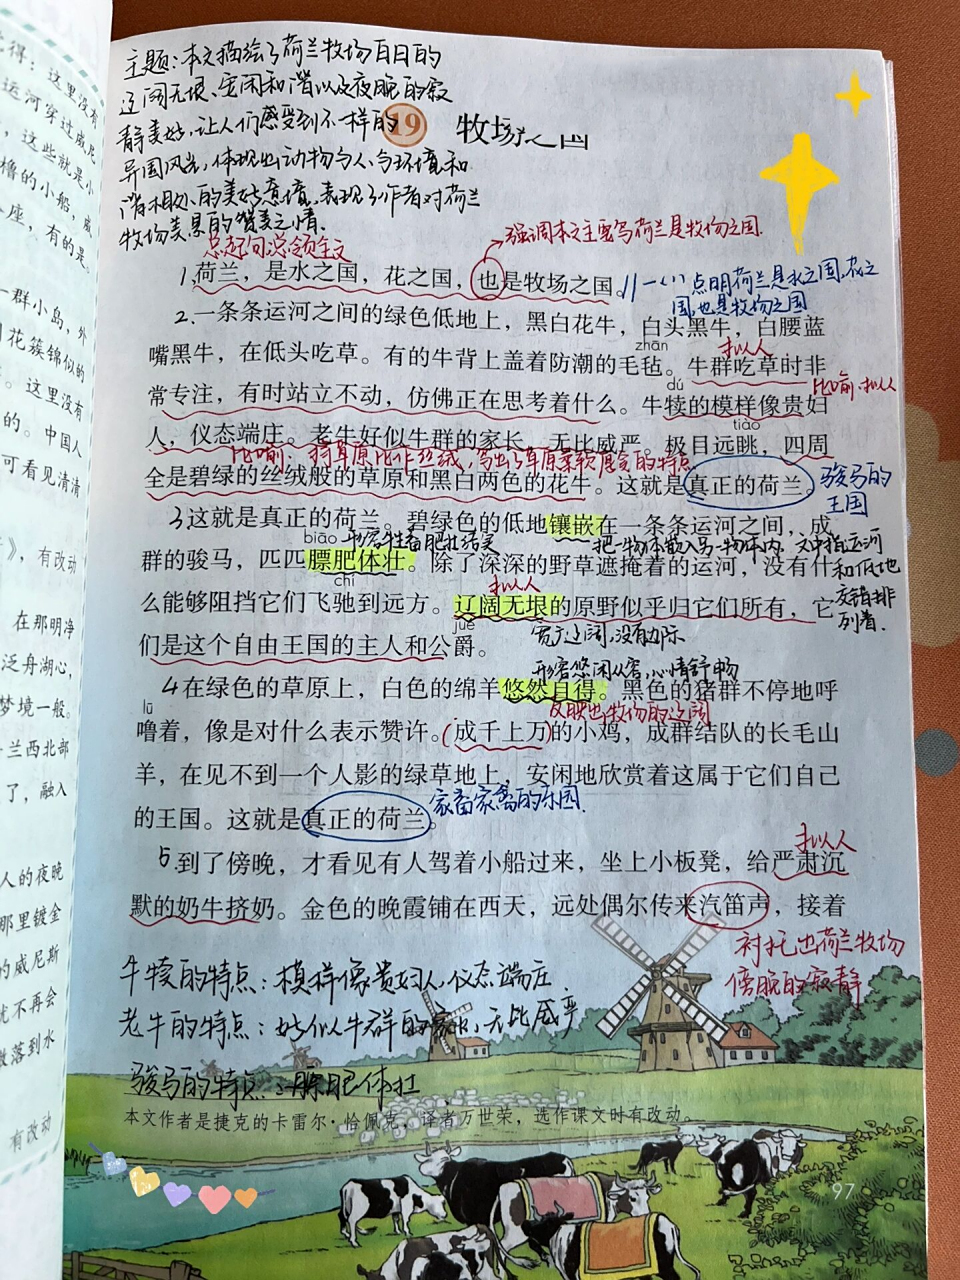 主题:本文描绘了荷兰牧场白日的
辽阔无垠、安闲和谐以及夜晚的寂
静美好,让人们感受到不一样的
异国风光,体现出动物与人、与环境和
谐相处的美好意境,表现了作者对荷兰
牧场美景的赞美之情.
19 牧场之国
总起句,总领全文
强调本文主要写荷兰是牧场之国.
1.荷兰,是水之国,花之国,也是牧场之国。
一(1)点明荷兰是水之国,花之
国,也是牧场之国
2.一条条运河之间的绿色低地上,黑白花牛,白头黑牛,白腰蓝
嘴黑牛,在低头吃草。有的牛背上盖着防潮的毛毡。牛群吃草时非
zhān
拟人
常专注,有时站立不动,仿佛正在思考着什么。牛犊的模样像贵妇
dú
比喻 拟人
人,仪态端庄。老牛好似牛群的家长,无比威严。极目远眺,四周
tiào
比喻:将草原比作丝绒,写出了草原柔软 的特点
全是碧绿的丝绒般的草原和黑白两色的花牛。这就是真正的荷兰。
骏马的
王国
3这就是真正的荷兰。碧绿色的低地镶嵌在一条条运河之间,成
biāo
形容牲畜肥壮结实
把一物体嵌入另一物体内,文中指运河
和低地
交错排
列着.
群的骏马,匹匹膘肥体壮。除了深深的野草遮掩着的运河,没有什
chí
拟人
么能够阻挡它们飞驰到远方。辽阔无垠的原野似乎归它们所有,它
jué
宽广辽阔,没有边际
们是这个自由王国的主人和公爵。
形容悠闲从容,心情舒畅
4在绿色的草原上,白色的绵羊悠然自得。黑色的猪群不停地呼
lū
反映出牧场的辽阔
噜着,像是对什么表示赞许。(成千上万)的小鸡,成群结队的长毛山
羊,在见不到一个人影的绿草地上,安闲地欣赏着这属于它们自己
的王国。这就是真正的荷兰。
家畜家禽的乐园.
5.到了傍晚,才看见有人驾着小船过来,坐上小板凳,给严肃沉
拟人
默的奶牛挤奶。金色的晚霞铺在西天,远处偶尔传来汽笛声,接着
衬托出荷兰牧场
傍晚的寂静
牛犊的特点:模样像贵妇人,仪态端庄.
老牛的特点:好似牛群的家长,无比威严
骏马的特点:膘肥体壮
本文作者是捷克的卡雷尔·恰佩克,译者万世荣,选作课文时有改动。
97
这里没有
运河穿过威尼
,这些就是小
橹的小船,威
座,有的是。
一群小岛,外
花簇锦似的
。这里没有
的。中国人
可看见清清
》,有改动
在那明净
泛舟湖心,
梦境一般。
兰西北部
了,融入
人的夜晚
那里镀金
的威尼斯
就不再会
散落到水
有改动